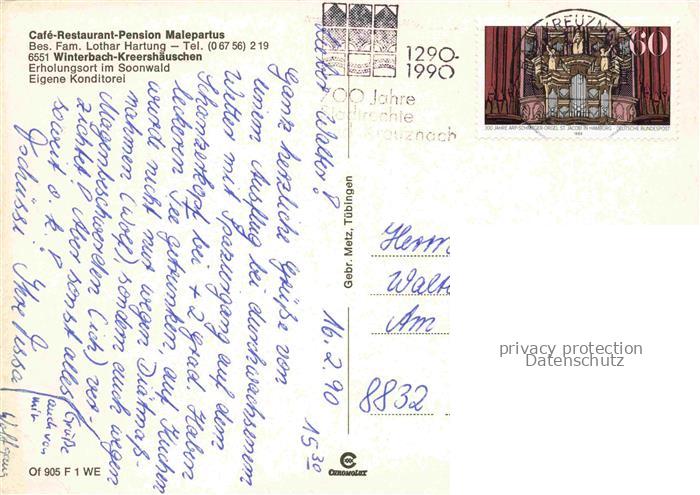 Café-Restaurant-Pension Malepartus
Bes. Fam. Lothar Hartung – Tel. (0 67 56) 2 19
6551 Winterbach-Kreershäuschen
Erholungsort im Soonwald
Eigene Konditorei
1290-
1990
700 Jahre
Stadtrechte
Kreuznach
KREUZN
60
300 JAHRE ARP-SCHNITGER-ORGEL ST. JACOBI IN HAMBURG
DEUTSCHE BUNDESPOST
1989
16.2.90 15³⁰
Lieber Walter!
Ganz herzliche Grüße von
unserem Ausflug bei durchwachsenem
Wetter mit Spaziergang auf dem
Schanzerkopf bei + 2 Grad. Haben
leckeren Tee getrunken, auf Kuchen
wurde nicht nur wegen Diätmaß-
nahmen (Wolf) sondern auch wegen
Magenbeschwerden (ich) ver-
zichtet! Aber sonst alles
soweit o.k.!
Tschüssi! Ihre Jussa
Grüße
auch von
mir
Wolfgang
Gebr. Metz, Tübingen
Herrn
Walt
Am
8832
privacy protection
Datenschutz
CHROMOLUX
Of 905 F 1 WE